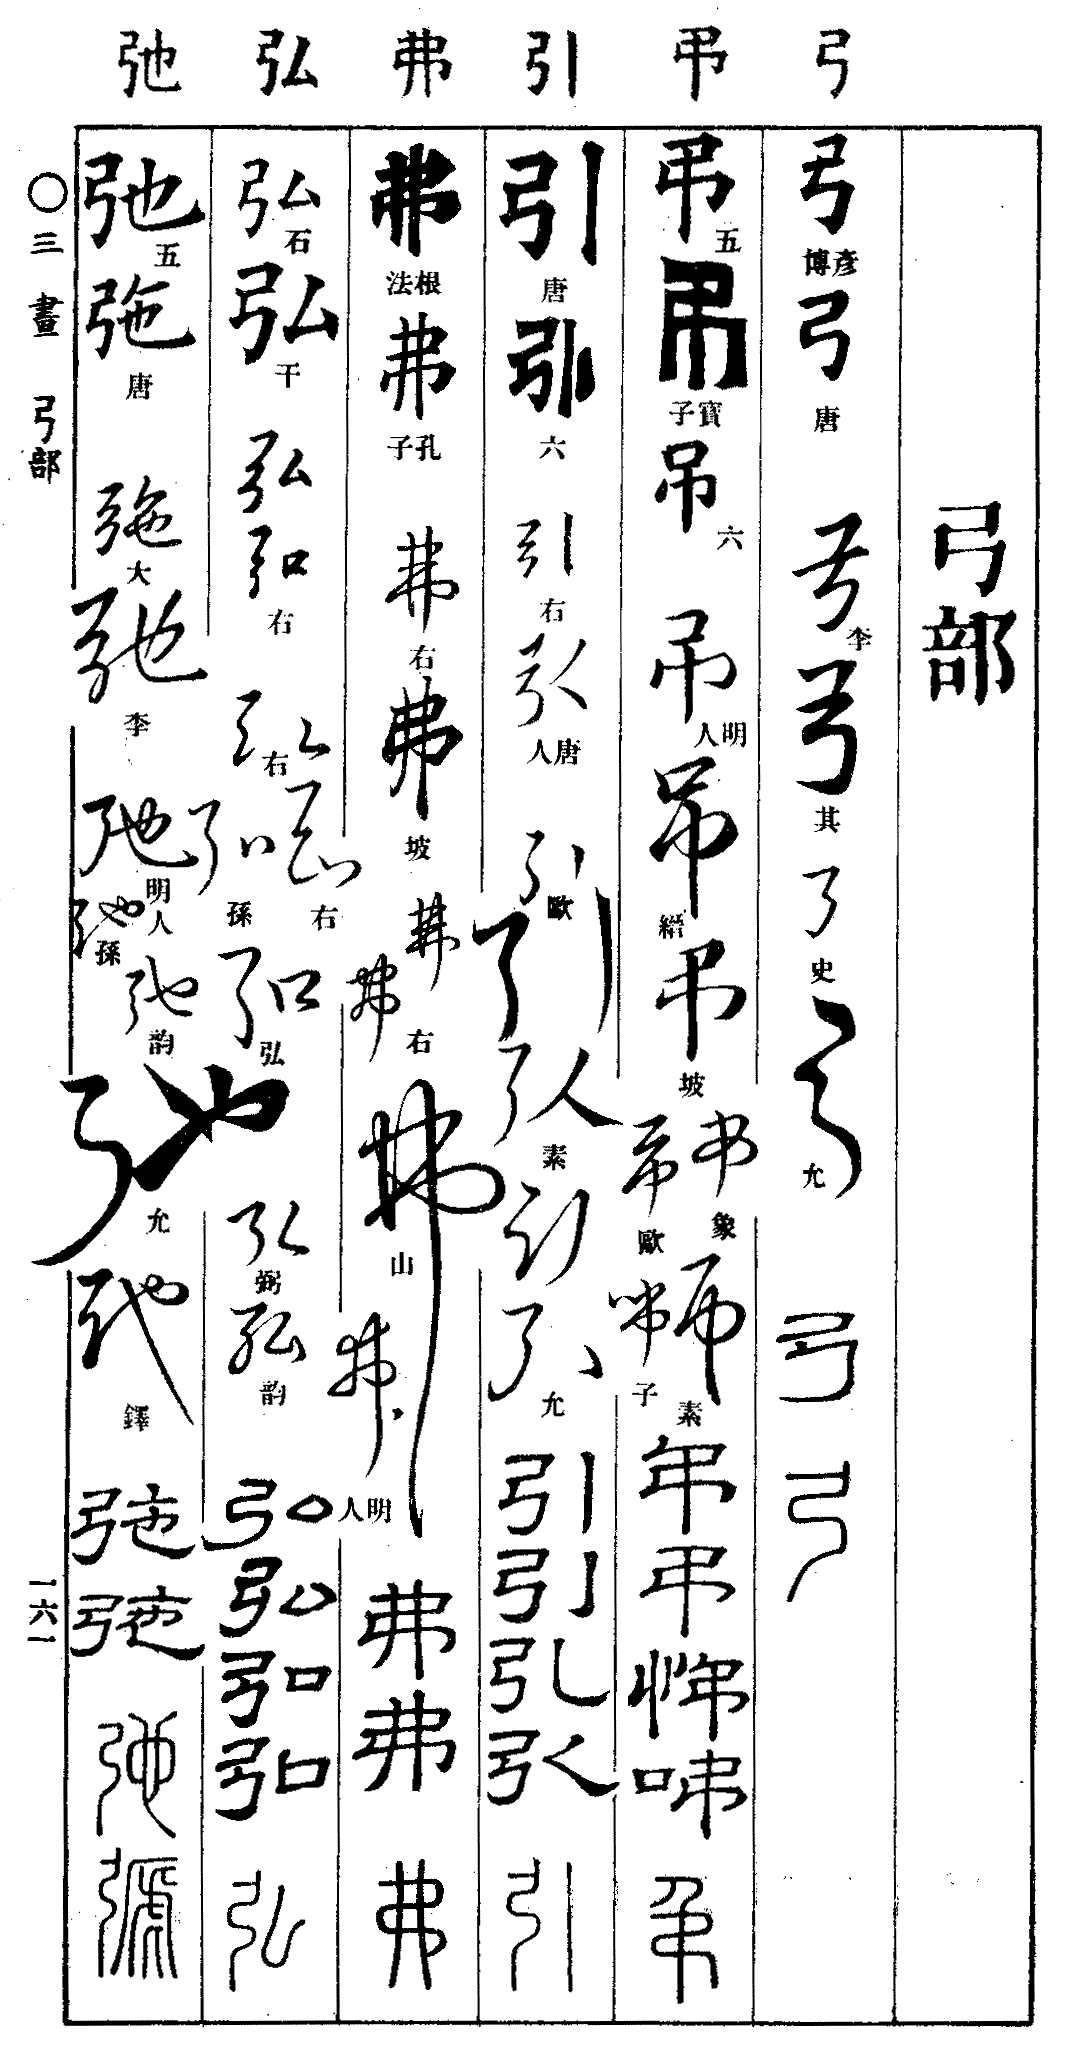 弓 弔 引 弗 弘 弛
弓部
弓 彥博 弓 唐 弓 李 弓 其 弓 史 弓 允 弓 弓
弔 五 弔 寶子 吊 六 吊 明人 吊 縉 弔 坡 弔 象 弔 歐 弔 素 子 弔 弔 弔 弔 弔
引 唐 引 六 引 右 引 唐人 引 歐 引 引 素 引 引 允 引 引 引 引 引
弗 根法 弗 孔子 弗 右 弗 坡 弗 弗 右 弗 山 弗 明人 弗 弗 弗
弘 石 弘 干 弘 弘 右 弘 右 弘 右 弘 孫 弘 弘 弘 弼 弘 韵 弘 弘 弘 弘 弘
弛 五 弛 唐 弛 大 弛 李 弛 明人 弛 孫 弛 韵 弛 允 弛 鐸 弛 弛 弛
〇三畫 弓部
一六一